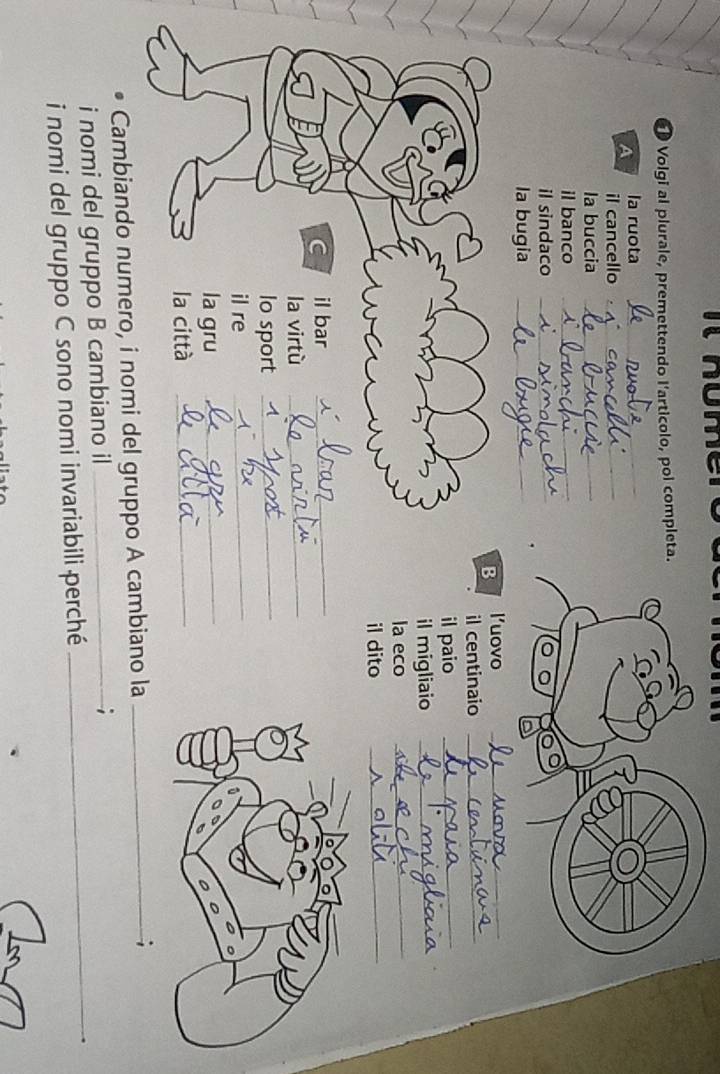 1 Volgi al plurale, premettendo l'articolo, poi completa.
A
la ruota le ruote
il cancello i cancelli
la buccia le buccie
il banco i banchi
il sindaco i sindachi
la bugia le bugie
B
l'uovo le uova
il centinaio le centinaia
il paio le paia
il migliaio le migliaia
la eco echi
il dito diti
C
il bar i bar
la virtù le virtù
lo sport i spost
il re i re
la gru le gru
la città le città
• Cambiando numero, i nomi del gruppo A cambiano la ;
i nomi del gruppo B cambiano il ;
i nomi del gruppo C sono nomi invariabili perché .